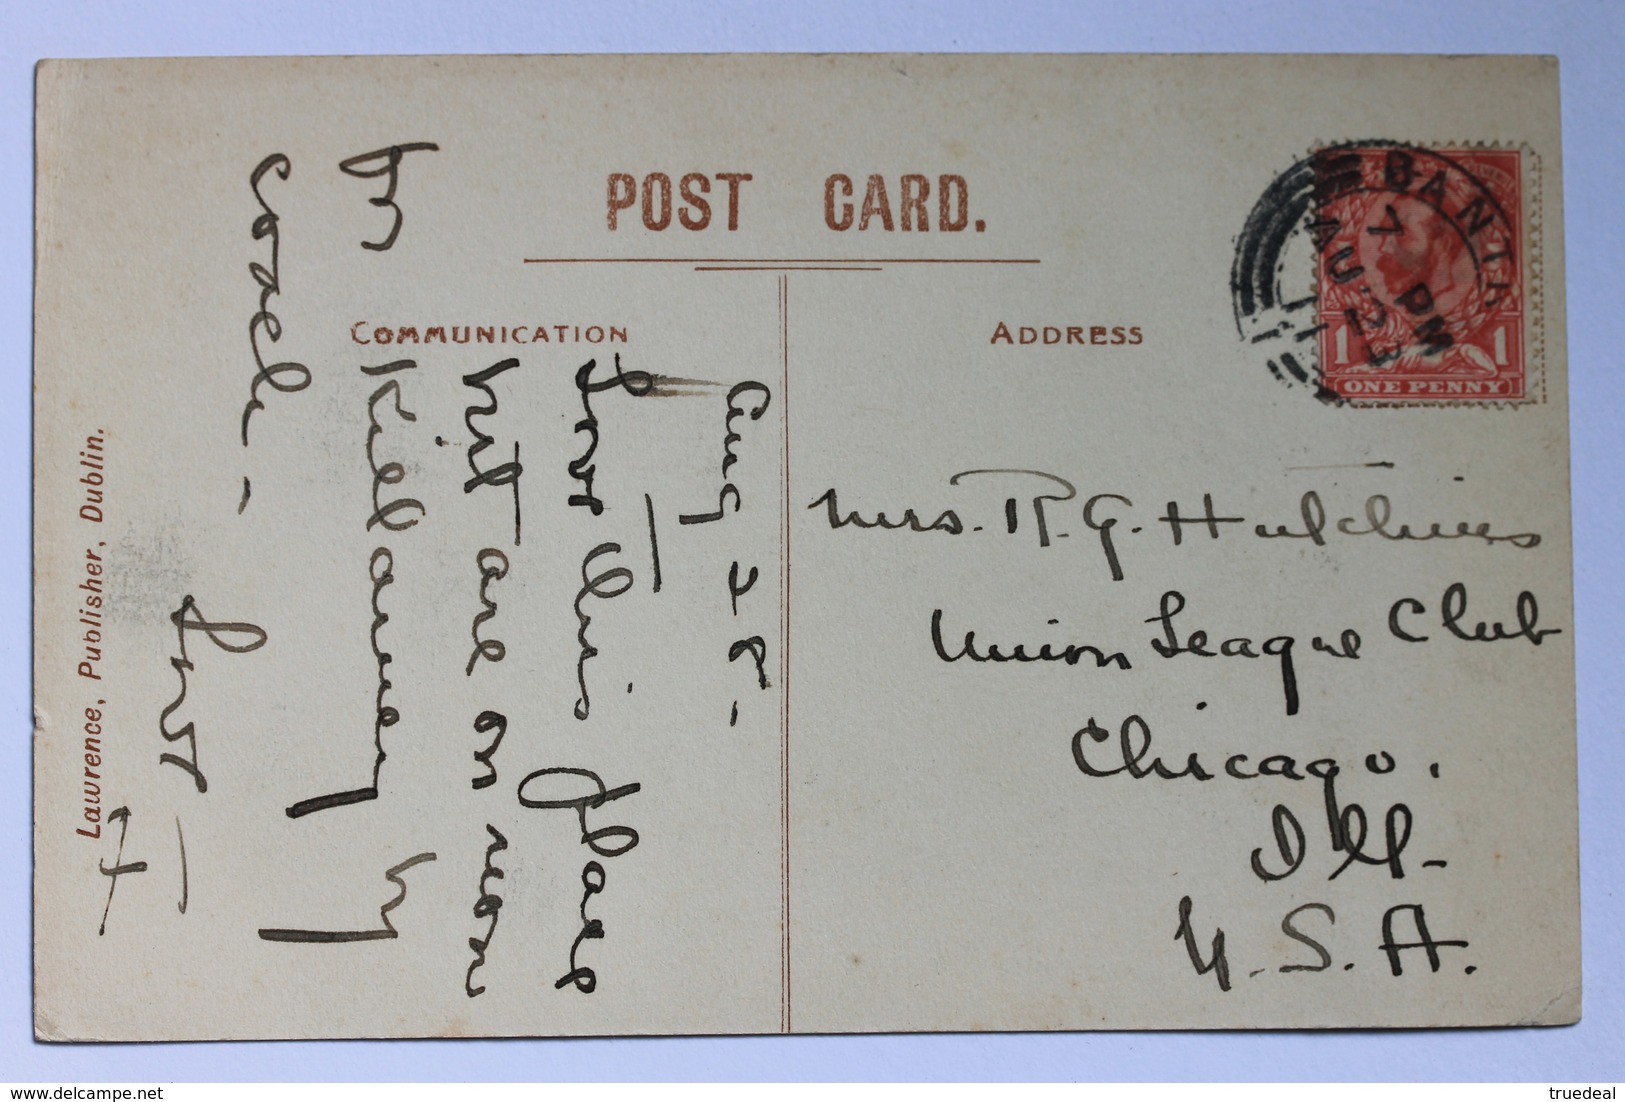 POST CARD.
COMMUNICATION
ADDRESS
BANTR
7 PM
AU 23
11
1 ONE PENNY 1
Aug 28-
Love this place
but are on now
Killarney by
coach -
Mrs. R. G. Hutchins
Union League Club
Chicago.
Ill-
U. S. A.
Lawrence, Publisher, Dublin.
delcampe.net
truedeal